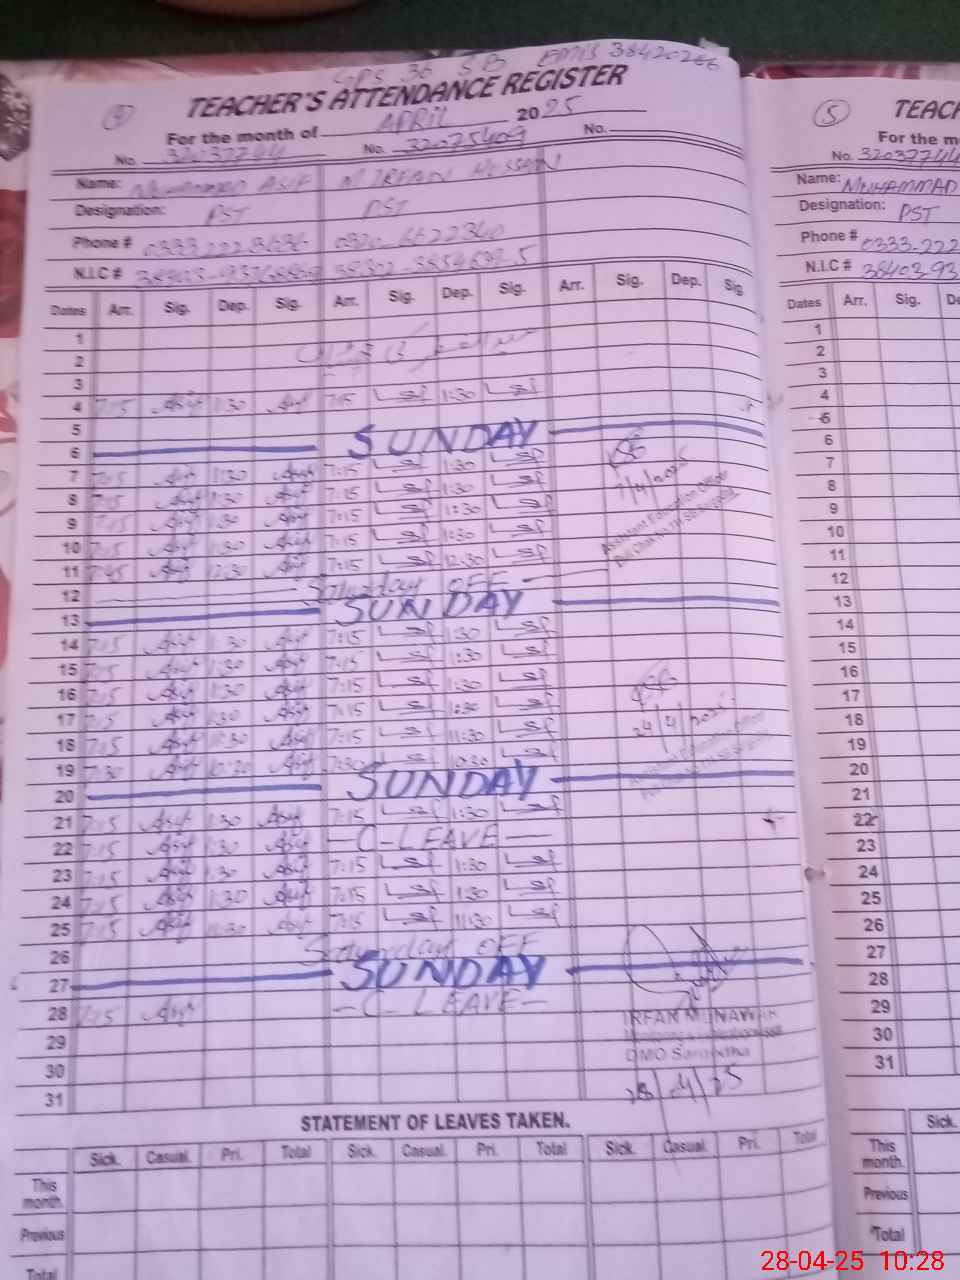 GPS 36 SB EMIS 38420286
TEACHER'S ATTENDANCE REGISTER
For the month of APRIL 2025
No. 32037744 No. 32025409 No.
Name: MUHAMMAD ASIF M IRFAN HUSSAIN
Designation: PST PST
Phone #
N.I.C #
Dates Arr. Sig. Dep. Sig. Arr. Sig. Dep. Sig. Arr. Sig. Dep. Sig.
1
2
3
4 7:15 Asif 1:30 Asif 7:15 1:30
5
6 SUNDAY
7 7:15 Asif 1:30 Asif 7:15 1:30
8 7:15 Asif 1:30 Asif 7:15 1:30
9 7:15 Asif 1:30 Asif 7:15 1:30
10 7:15 Asif 1:30 Asif 7:15 1:30
11 Asif 12:30 Asif 7:15 12:30
12 Saturday OFF
13 SUNDAY
14 7:15 Asif 1:30 Asif 7:15 1:30
15 7:15 Asif 1:30 Asif 7:15 1:30
16 7:15 Asif 1:30 Asif 7:15 1:30
17 7:15 Asif 1:30 Asif 7:15 1:30
18 7:15 Asif 11:30 Asif 7:15 11:30
19 7:30 Asif 10:30 Asif 7:30 10:30
20 SUNDAY
21 7:15 Asif 1:30 Asif 7:15 1:30
22 7:15 Asif 1:30 Asif C-LEAVE
23 7:15 Asif 1:30 Asif 7:15 1:30
24 7:15 Asif 1:30 Asif 7:15 1:30
25 7:15 Asif 11:30 Asif 7:15 11:30
26 Saturday OFF
27 SUNDAY
28 7:15 Asif C-LEAVE
29
30
31
Assistant Education Officer
24/4/2025
Assistant Education Officer
IRFAN MUNAWAR
DMO Sargodha
28/4/25
STATEMENT OF LEAVES TAKEN.
Sick. Casual. Pri. Total Sick. Casual. Pri. Total Sick. Casual. Pri. Total
This month.
Previous
Total
5 TEACH
For the m
No. 32037744
Name: MUHAMMAD
Designation: PST
Phone # 0333-222
N.I.C # 3840393
Dates Arr. Sig. De
1
2
3
4
5
6
7
8
9
10
11
12
13
14
15
16
17
18
19
20
21
22
23
24
25
26
27
28
29
30
31
Sick.
This month.
Previous
Total
28-04-25 10:28